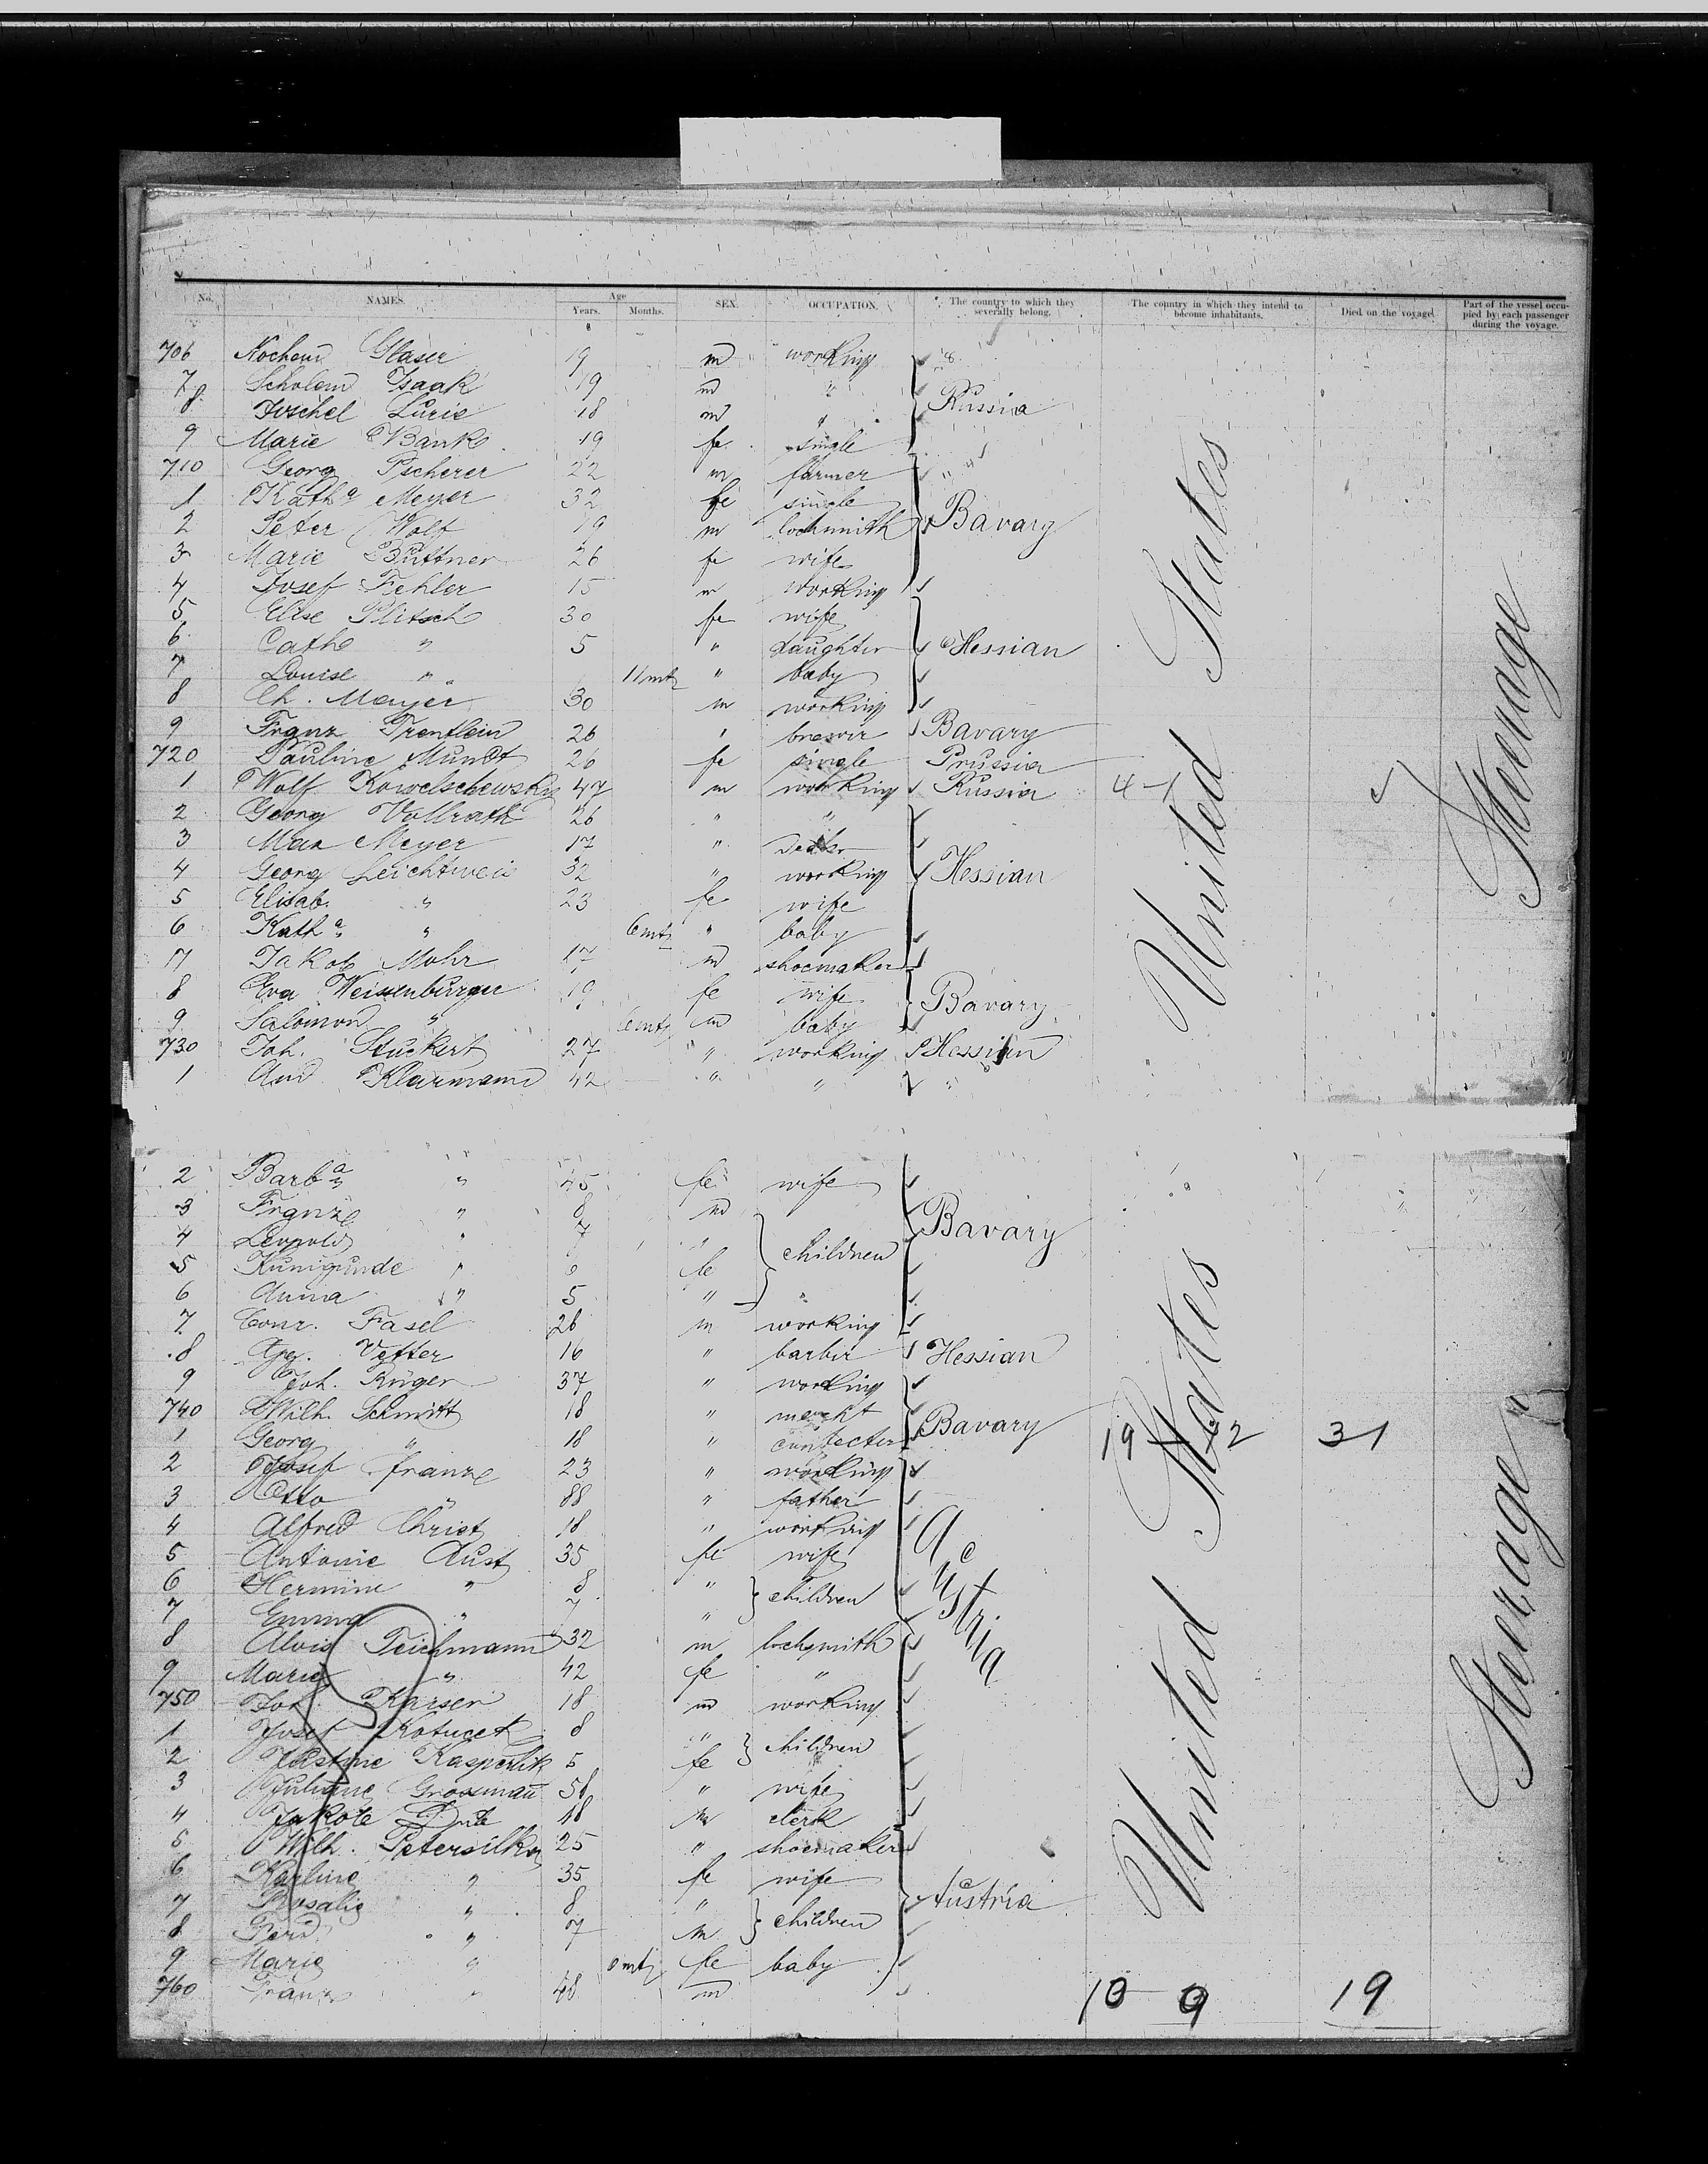 No. NAMES. Age Years. Months. SEX. OCCUPATION. The country to which they severally belong. The country in which they intend to become inhabitants. Died on the voyage. Part of the vessel occupied by each passenger during the voyage.
706 Glaser 19 m working
7 Scholem Isaak 19 m "
8 Joschel Lurie 18 m " Russia
9 Marie Bank 19 fe single
710 Georg Pscherer 22 m farmer "
1 Katha Meyer 32 fe single
2 Peter Wolf 19 m locksmith Bavary
3 Marie Büttner 26 fe wife
4 Josef Fehler 15 m working
5 Elise Plitsch 30 fe wife
6 Cath " 5 " daughter Hessian
7 Louise " 11 mts " baby
8 Ch. Mayer 30 m working
9 Franz Trentlein 26 " brewer Bavary
720 Pauline Mundt 26 fe single Prussia
1 Wolf Kowelschewsky 47 m working Russia 4-1
2 Georg Vollrath 26 " "
3 Max Meyer 17 "
4 Georg Leichtweis 32 " working Hessian
5 Elisab. " 23 fe wife
6 Katha " 6 mts " baby
7 Jakob Mohr 17 m shoemaker
8 Eva Weissenburger 19 fe wife Bavary
9 Salomon " 6 mts m baby
730 Joh. Stuckert 27 " working Hessian
1 And. Klarmann 42 " " "
United States
Steerage
2 Barba " 45 fe wife
3 Franz " 8 m
4 Leopold " 7 " children Bavary
5 Kunigunde " 6 fe
6 Anna " 5 " "
7 Conr. Fasel 26 m working
8 Vetter 16 " barbir Hessian
9 Joh. Krüger 37 " working
740 Wilh. Schmitt 18 " mercht Bavary
1 Georg " 18 " confecter 19 12 31
2 Josef Franze 23 " working
3 Otto " 88 " father
4 Alfred Christ 18 " working
5 Antonie Aust 35 fe wife
6 Hermine " 8 " children Austria
7 Emma " 7 "
8 Alois Teichmann 32 m locksmith
9 Marie " 42 fe "
750 Karsen 18 m working
1 Josef Kotucek 8 " children
2 Justine Kasperlik 5 fe
3 Juliane Grossmann 56 " wife
4 Jakob 18 m clerk
5 Wilh. Petersilka 25 " shoemaker
6 Karline " 35 fe wife
7 Rosalie " 8 " children Austria
8 Ferd. " 7 m
9 Marie " mts fe baby
760 Franz " 48 m 10 9 19
United States
Steerage